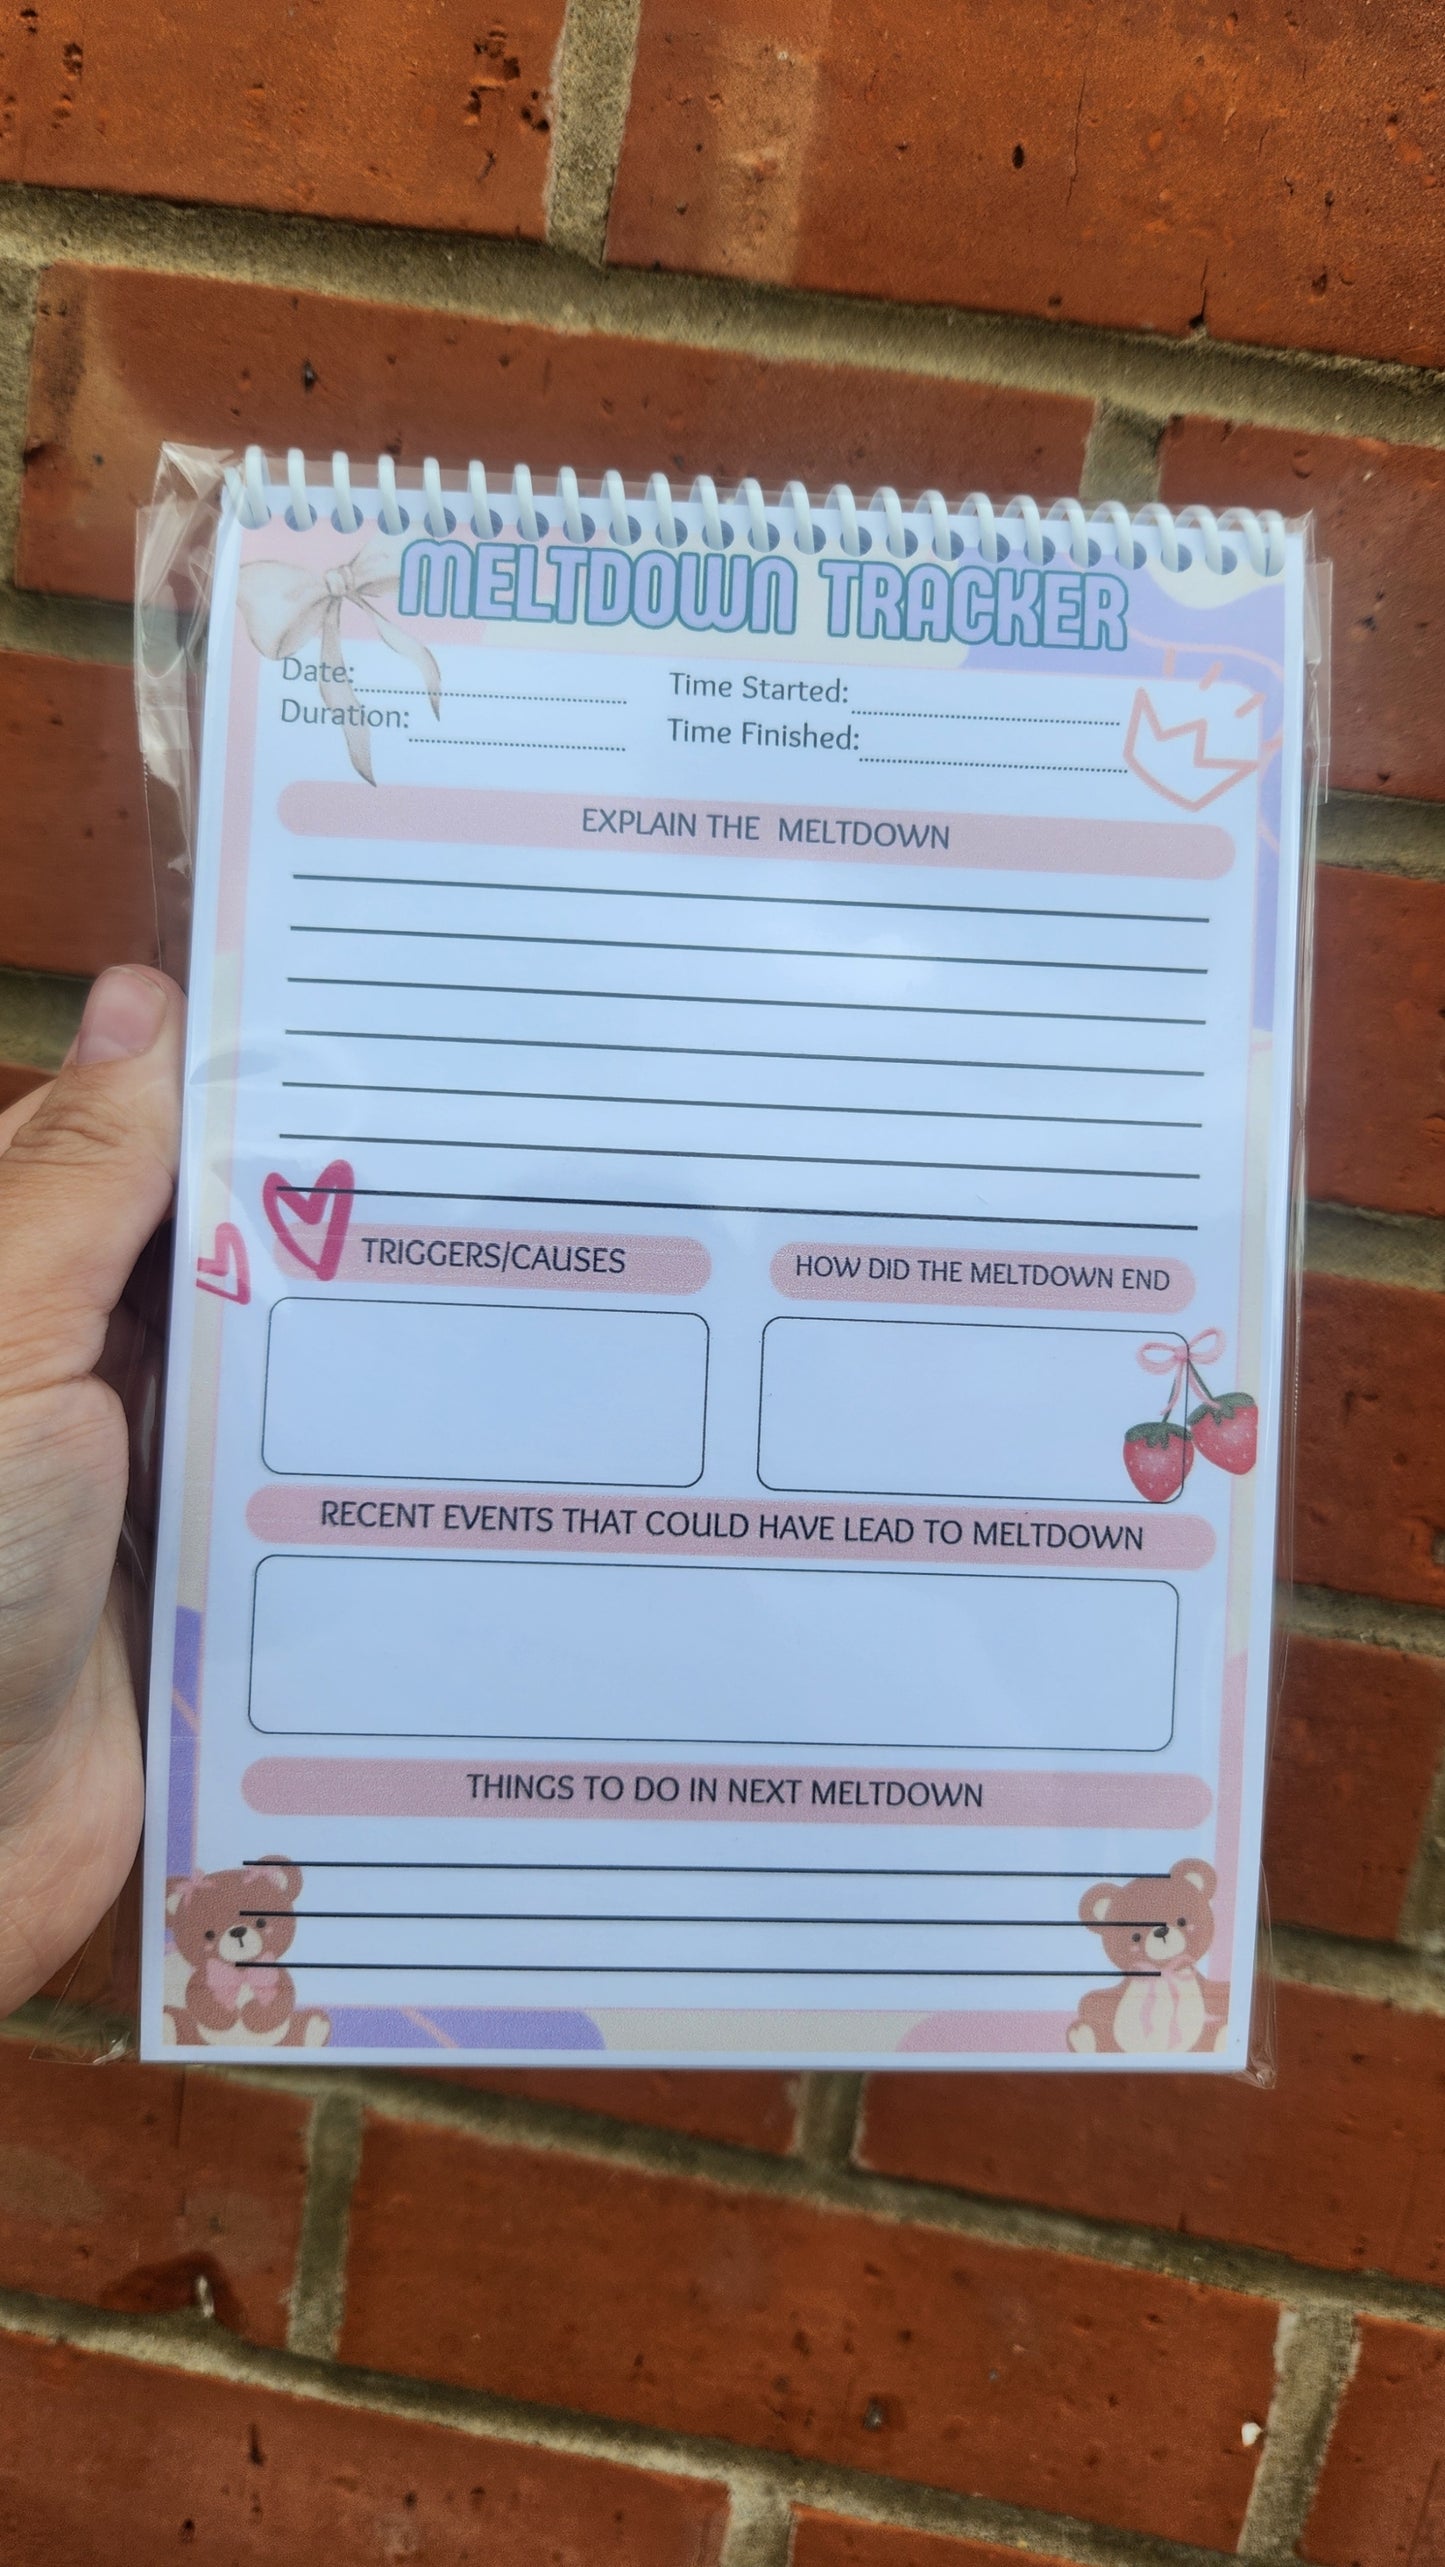 MELTDOWN TRACKER
Date: Time Started:
Duration: Time Finished:
EXPLAIN THE MELTDOWN
TRIGGERS/CAUSES HOW DID THE MELTDOWN END
RECENT EVENTS THAT COULD HAVE LEAD TO MELTDOWN
THINGS TO DO IN NEXT MELTDOWN